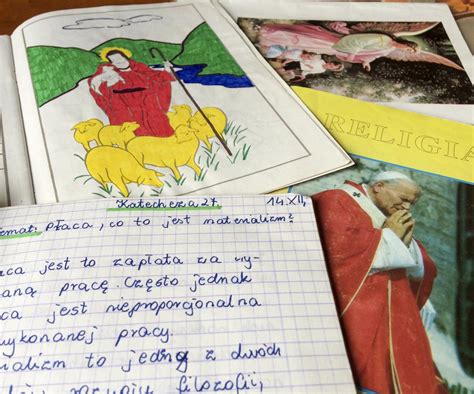 RELIGIA
Katecheza 27.
14.XII,
emat: Płaca, co to jest materializm?
aca jest to zapłata za wy-
aną pracę. Często jednak
ca jest nieproporcjonalna
ykonanej pracy.
ializm to jedną z dwóch
filozofii,